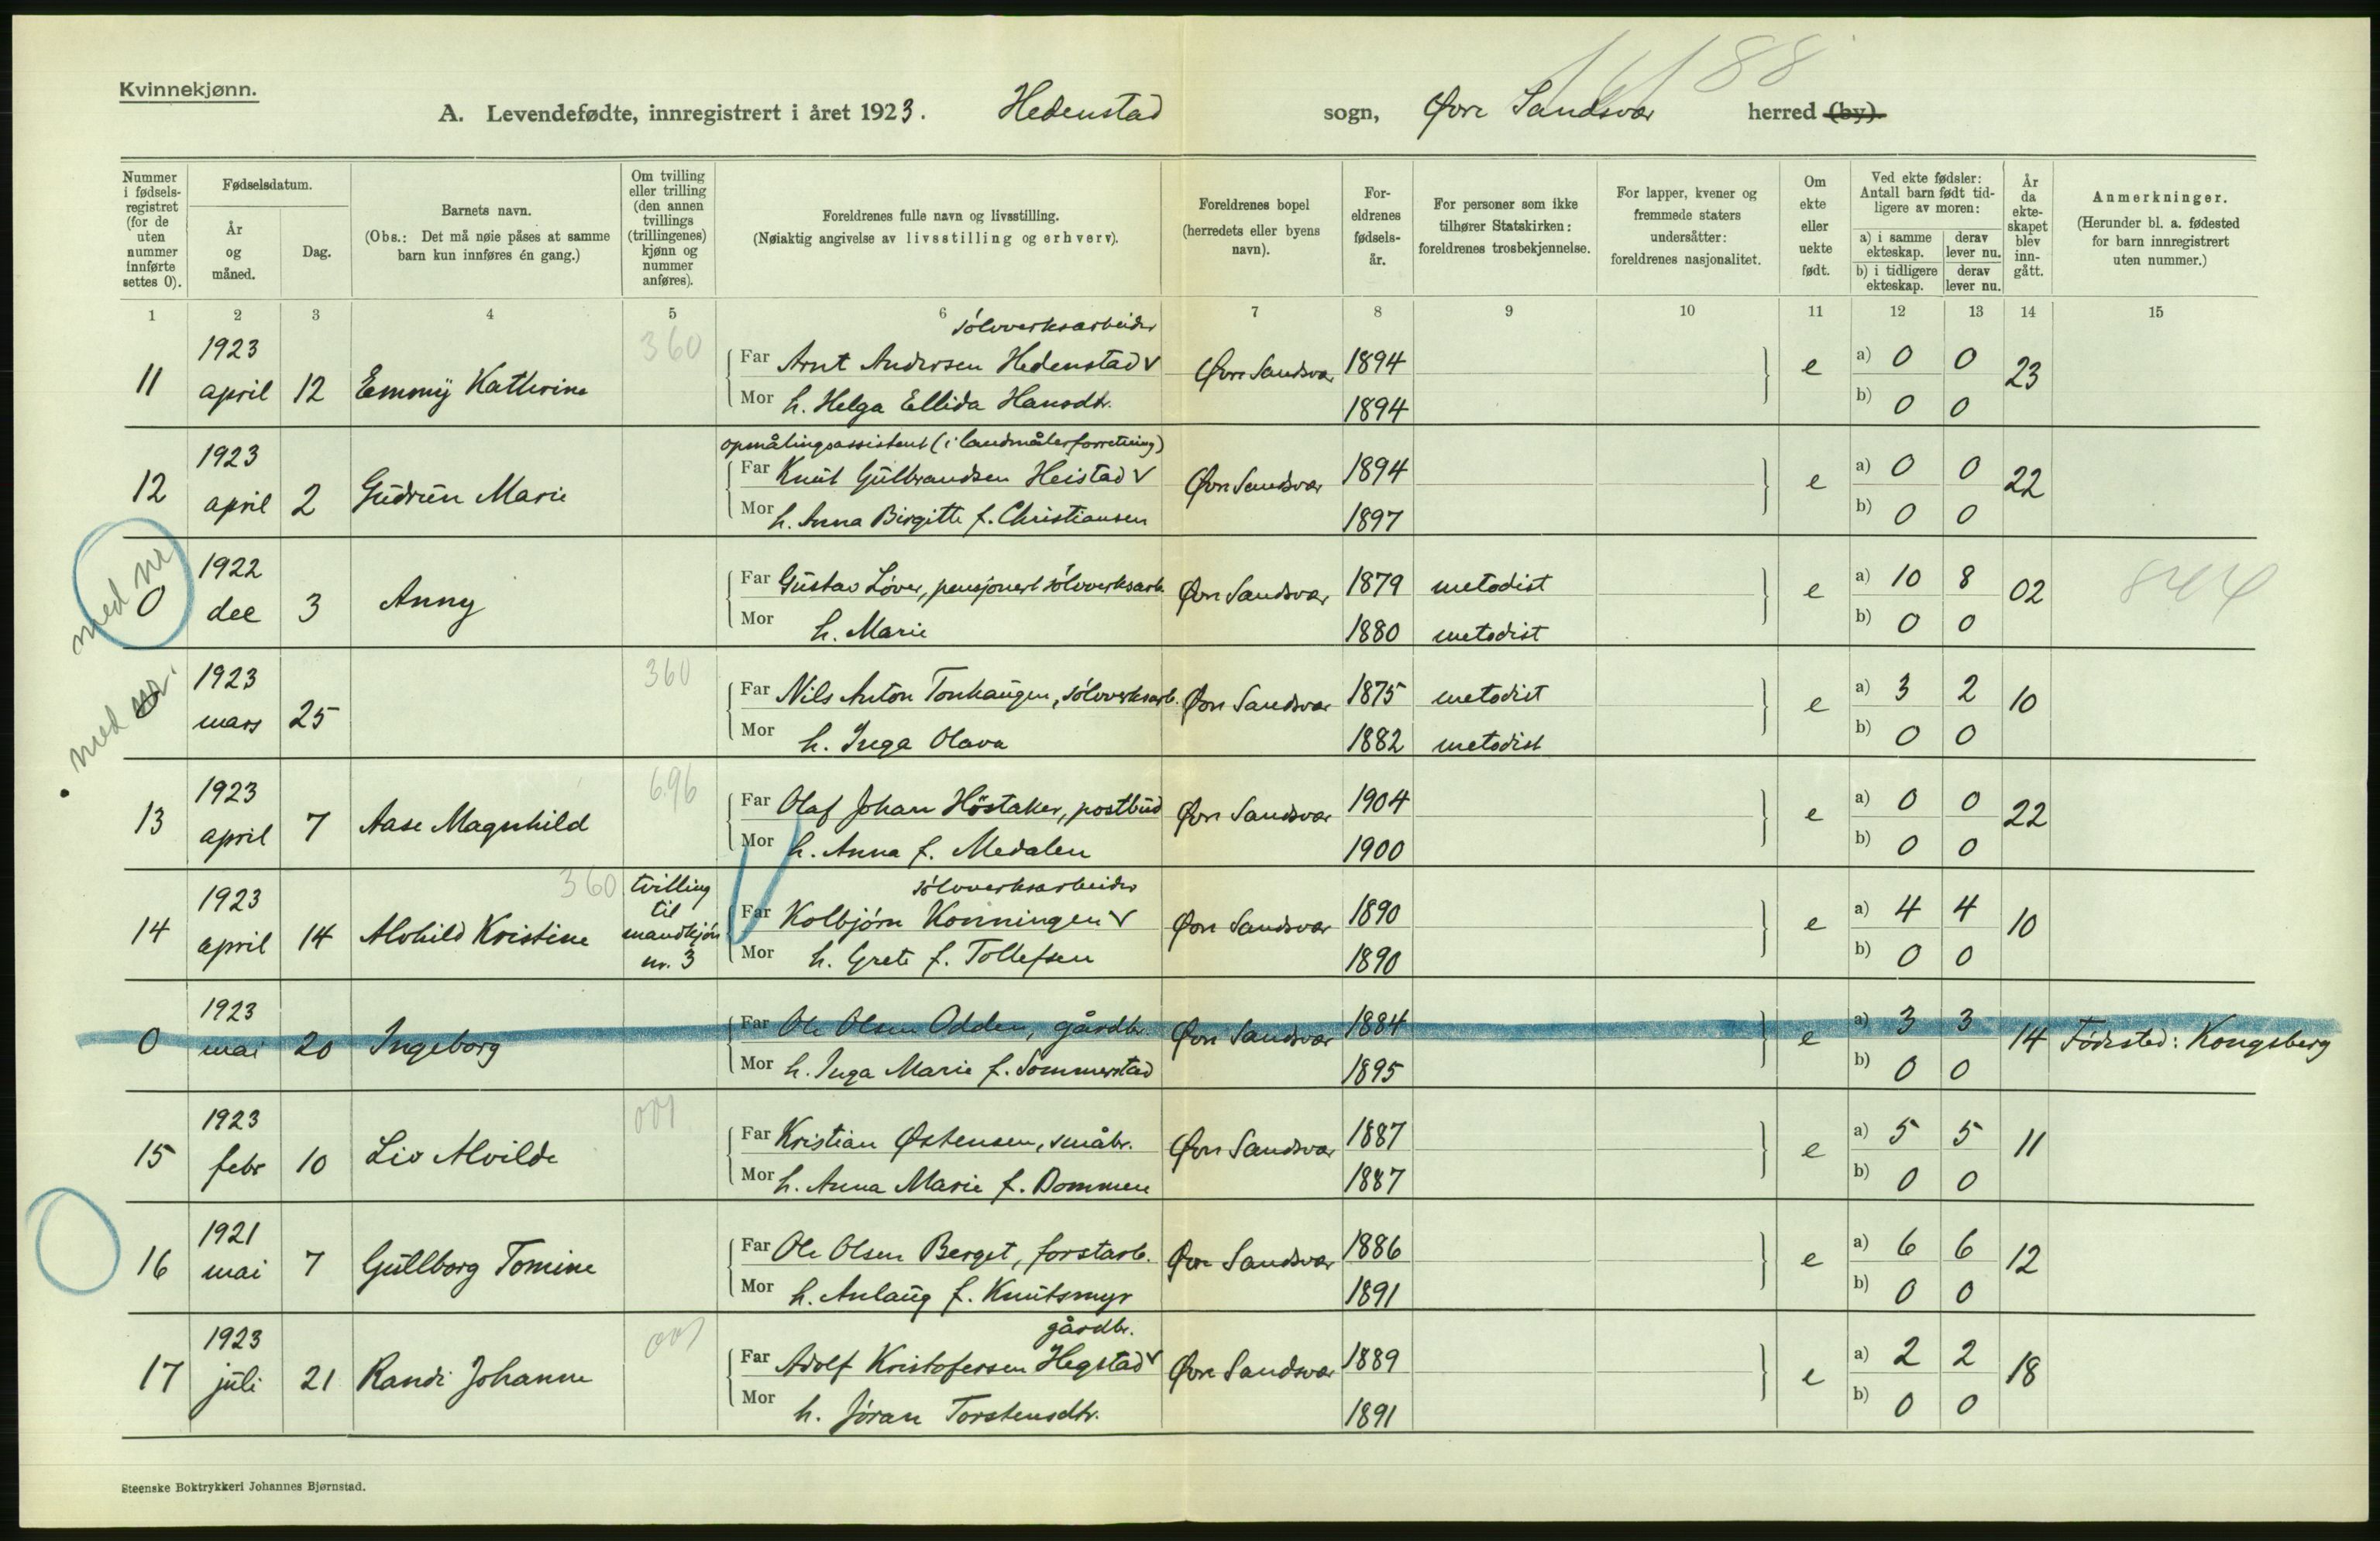 88
Kvinnekjønn.
A. Levendefødte, innregistrert i året 1923. Hedenstad sogn, Øvre Sandsvær herred (by).
Nummer i fødselsregistret (for de uten nummer innførte settes 0).
Fødselsdatum.
År og måned.
Dag.
Barnets navn.
(Obs.: Det må nøie påses at samme barn kun innføres én gang.)
Om tvilling eller trilling (den annen tvillings (trillingenes) kjønn og nummer anføres).
Foreldrenes fulle navn og livsstilling.
(Nøiaktig angivelse av livsstilling og erhverv).
Foreldrenes bopel (herredets eller byens navn).
Foreldrenes fødselsår.
For personer som ikke tilhører Statskirken: foreldrenes trosbekjennelse.
For lapper, kvener og fremmede staters undersåtter: foreldrenes nasjonalitet.
Om ekte eller uekte født.
Ved ekte fødsler: Antall barn født tidligere av moren:
a) i samme ekteskap. derav lever nu.
b) i tidligere ekteskap. derav lever nu.
År da ekteskapet blev inngått.
Anmerkninger.
(Herunder bl. a. fødested for barn innregistrert uten nummer.)
1 2 3 4 5 6 7 8 9 10 11 12 13 14 15
360 sölvverksarbeider
11 1923 april 12 Emmy Katherine Far Arnt Andersen Hedenstad v Øvre Sandsvær 1894 e a) 0 0 23
Mor h. Helga Ellida Hansdtr. 1894 b) 0 0
opmålingsassistent (i landmålerforretning)
12 1923 april 2 Gudrun Marie Far Knut Gulbrandsen Heistad v Øvre Sandsvær 1894 e a) 0 0 22
Mor h. Anna Birgitte f. Christiansen 1897 b) 0 0
med nr
0 1922 des 3 Anny Far Gustav Löver, pensjonert sölvverksarb. Øvre Sandsvær 1879 metodist e a) 10 8 02 844
Mor h. Marie 1880 metodist b) 0 0
med nr.
1923 mars 25 360 Far Nils Anton Tonhaugen, sölvverksarb. Øvre Sandsvær 1875 metodist e a) 3 2 10
Mor h. Inga Olava 1882 metodist b) 0 0
13 1923 april 7 Aase Magnhild 696 Far Olaf Johan Höstaker, postbud Øvre Sandsvær 1904 e a) 0 0 22
Mor h. Anna f. Medalen 1900 b) 0 0
360 tvilling til mandkjön nr. 3 sölvverksarbeider
14 1923 april 14 Alvhild Kristine Far Kolbjörn Konningen v Øvre Sandsvær 1890 e a) 4 4 10
Mor h. Grete f. Tollefsen 1890 b) 0 0
0 1923 mai 20 Ingeborg Far Ole Olsen Odden, gårdbr. Øvre Sandsvær 1884 e a) 3 3 14 Födested: Kongsberg
Mor h. Inga Marie f. Sommerstad 1895 b) 0 0
15 1923 febr 10 Liv Alvilde 001 Far Kristian Østensen, småbr. Øvre Sandsvær 1887 e a) 5 5 11
Mor h. Anna Marie f. Dommen 1887 b) 0 0
16 1921 mai 7 Gullborg Tomine Far Ole Olsen Berget, forstarb. Øvre Sandsvær 1886 e a) 6 6 12
Mor h. Anlaug f. Knutsmyr 1891 b) 0 0
001 gårdbr.
17 1923 juli 21 Randi Johanne Far Adolf Kristofersen Hegstad v Øvre Sandsvær 1889 e a) 2 2 18
Mor h. Jöran Torstensdtr. 1891 b) 0 0
Steenske Boktrykkeri Johannes Bjørnstad.